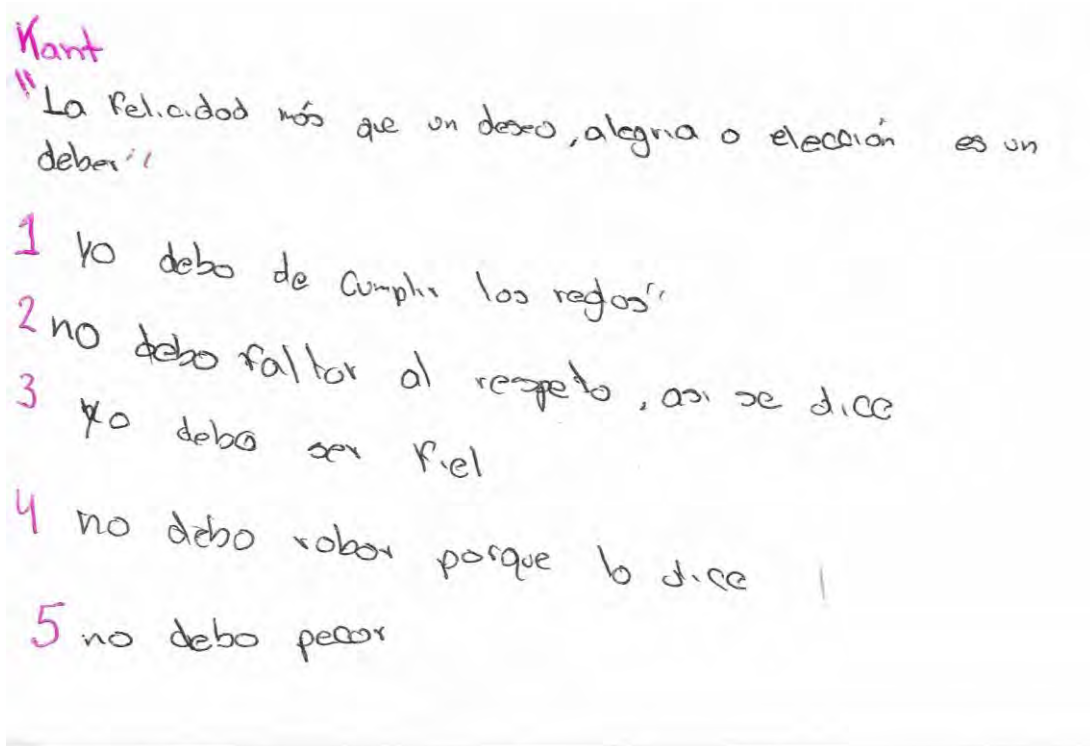 Kant
"La felicidad más que un deseo, alegria o elección es un
deber"
1 Yo debo de cumplir las reglas"
2 no debo faltar al respeto, asi se dice
3 Yo debo ser fiel
4 no debo robar porque lo dice
5 no debo pecar